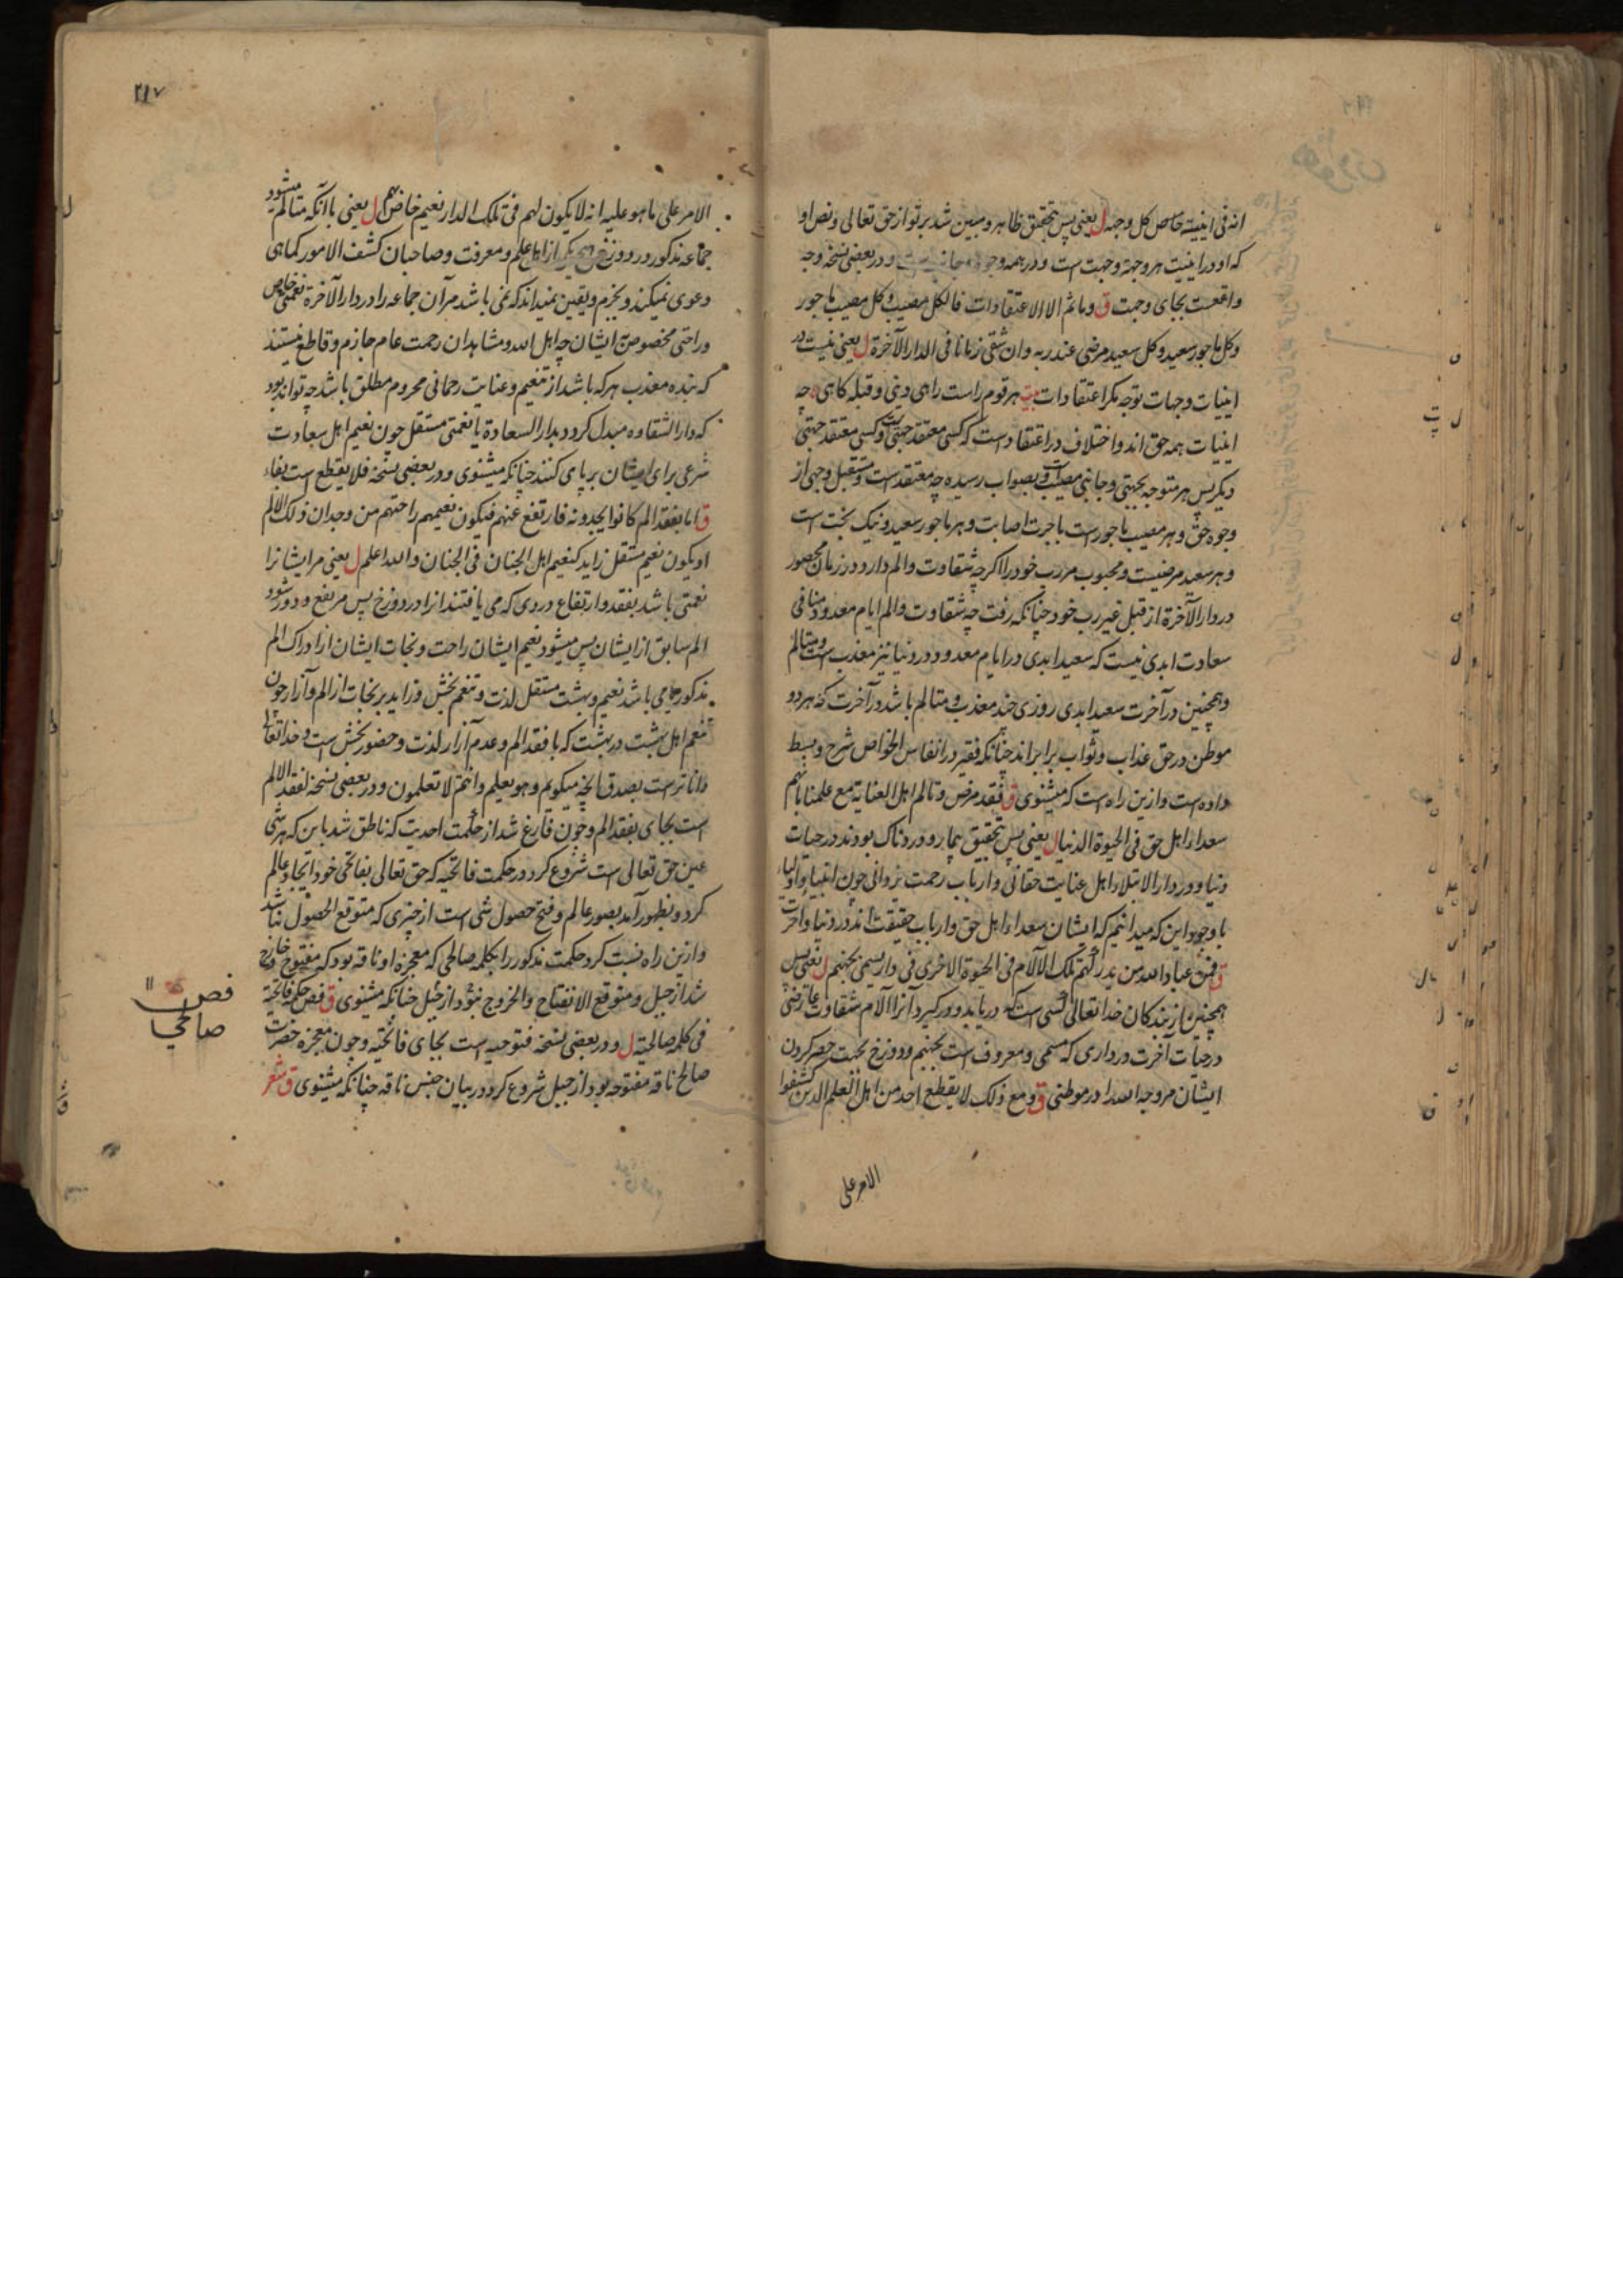 انه فی اینیته خاص کل وجهه ل یعنی پس بتحقیق ظاهر و مبین شد بر تو از حق تعالی و نص او
که او در اینیت هر وجهة وجهت است و در همه وجوه و در بعضی نسخه وجه
واقعست بجای وجهت ق وما ثم الا الاعتقادات فالکل مصیب وکل مصیب ماجور
وکل ماجور سعید وکل سعید مرضی عند ربه وان شقی زمانا فی الدار الآخرة ل یعنی نیست در
اینیات وجهات توجه مگر اعتقادات بیت هر قوم راست راهی دینی و قبله گاهی چه
اینیات همه حق اند و اختلاف در اعتقاد است که کسی معتقد جهتی است و کسی معتقد جهتی
دیگر پس هر متوجه بجهتی و جانبی مصیب است و بصواب رسیده چه معتقد است و مستقبل وجهی از
وجوه حق و هر مصیب ماجور است باجرت اصابت و هر ماجور سعید و نیک بخت است
و هر سعید مرضیست و محبوب مر رب خود را اگر چه شقاوت و الم دارد در زمان محصور
در دار الآخرة از قبل غیر رب خود چنانکه رفت چه شقاوت و الم ایام معدود منافی
سعادت ابدی نیست که سعید ابدی در ایام معدود در دنیا نیز معذب است و متالم
و همچنین در آخرت سعید ابدی روزی چند معذب و متالم باشد در آخرت که هر دو
موطن در حق عذاب و ثواب برابر اند چنانکه فقیر در انفاس الخواص شرح و بسط
داده است و ازین راه است که میشنوی ق فقد مرض و تالم اهل العنایة مع علمنا بانهم
سعداء اهل حق فی الحیوة الدنیا ل یعنی پس بتحقیق بیمار و دردناک بودند در حیات
دنیا و در دار الابتلاء اهل عنایت حقانی و ارباب رحمت یزدانی چون انبیا و اولیاء
با وجود این که میدانیم که ایشان سعداء اهل حق و ارباب حقیقت اند در دنیا و آخرت
ق فمن عباد الله من یدرکهم تلک الآلام فی الحیوة الاخری فی دار یسمی بجهنم ل یعنی پس
همچنین از بندکان خدا تعالی کسی است که دریابد و در کیرد آنرا آلام شقاوت عارضی
در حیات آخرت در داری که مسمی و معروف است بجهنم و دوزخ بجهت حصر کردن
ایشان مر وجه الله را در موطنی ق ومع ذلک لا یقطع احد من اهل العلم الذین کشفوا
الامر علی
۲۱۷
الامر علی ما هو علیه انه لا یکون لهم فی تلک الدار نعیم خاص بهم ل یعنی با آنکه متالم میشود
جماعه مذکور در دوزخ هیچ یکی از اهل علم و معرفت و صاحبان کشف الامور کماهی
دعوی نمیکند و بجزم و یقین نمیداند که نمی باشد مر آن جماعه را در دار الآخرة نعمتی خاص
و راحتی مخصوص مر ایشان چه اهل الله و مشاهدان رحمت عام جازم و قاطع نیستند
که بنده معذب هر که باشد از تنعیم و عنایت رحمانی محروم مطلق باشد چه تواند بود
که دار الشقاوه مبدل کردد بدار السعادة یا نعمتی مستقل چون نعیم اهل سعادت
شرعی برای ایشان بر پای کنند چنانکه میشنوی و در بعضی نسخه فلا یقطع است بفاء
ق اما بفقد الم کانوا یجدونه فارتفع عنهم فیکون نعیمهم راحتهم من وجدان ذلک الالم
او یکون نعیم مستقل زاید کنعیم اهل الجنان فی الجنان والله اعلم ل یعنی مر ایشانرا
نعمتی باشد بفقد و ارتفاع دردی که می یافتند آنرا در دوزخ پس مرتفع و دور شود
الم سابق از ایشان پس میشود نعیم ایشان راحت و نجات ایشان از ادراک الم
مذکور یا می باشد نعیم و بهشت مستقل لذت و تنعم بخش و زاید بر نجات از الم و آزار چون
نعیم اهل بهشت در بهشت که با فقد الم و عدم آزار لذت و حضور بخش است و خدا تعالی
داناتر است بصدق آنچه میکویم وهو یعلم وانتم لا تعلمون و در بعضی نسخه لفقد الالم
است بجای بفقد الم و چون فارغ شد از حکمت احدیت که ناطق شد باین که هر شی
عین حق تعالی است شروع کرد در حکمت فاتحیه که حق تعالی بفاتحی خود ایجاد عالم
کرد و بظهور آمد بصور عالم و فتح حصول شی است از چیزی که متوقع الحصول نباشد
و ازین راه نسبت کرد حکمت مذکور را بکلمه صالحی که معجزه او ناقه بود که مفتوح و خارج
شد از جبل و متوقع الانفتاح والخروج نبود از جبل چنانکه میشنوی ق فص حکمة فاتحیة
فی کلمة صالحیة ل و در بعضی نسخه فتوحیه است بجای فاتحیه و چون معجزه حضرت
صالح ناقه مفتوحه بود از جبل شروع کرد در بیان جنس ناقه چنانکه میشنوی ق شعر
فص
صالحی